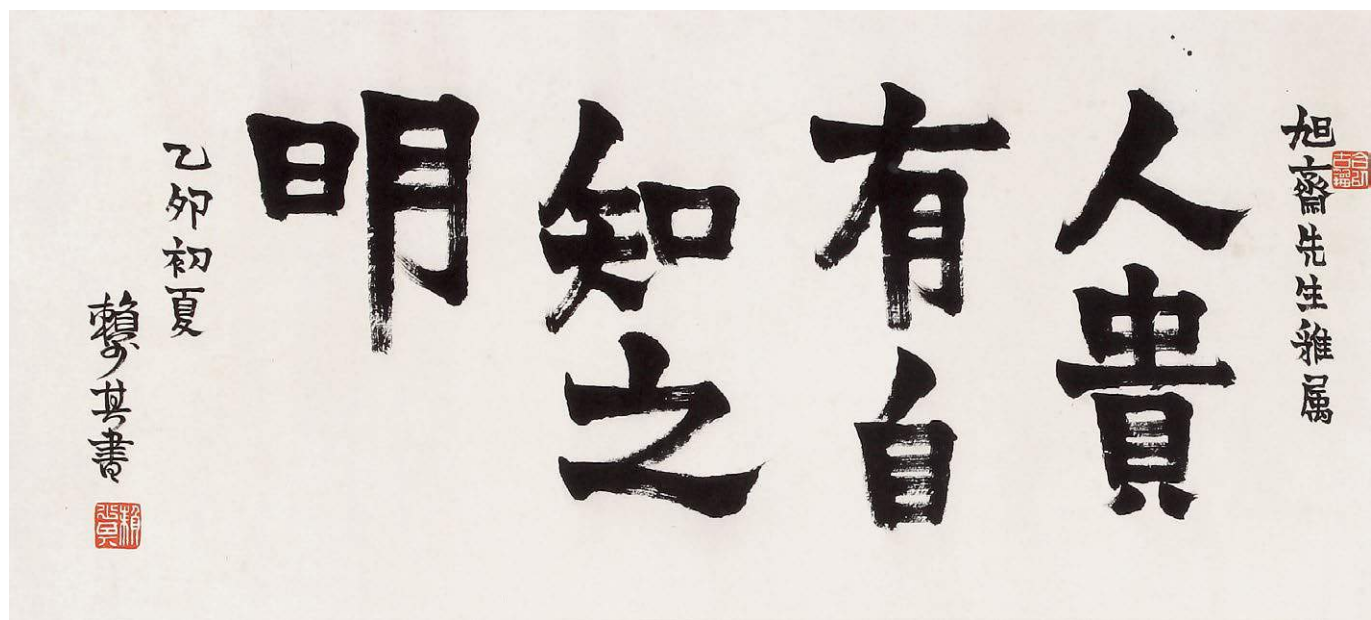 旭齋先生雅属
人貴
有自
知之
明
乙卯初夏
賴少其書